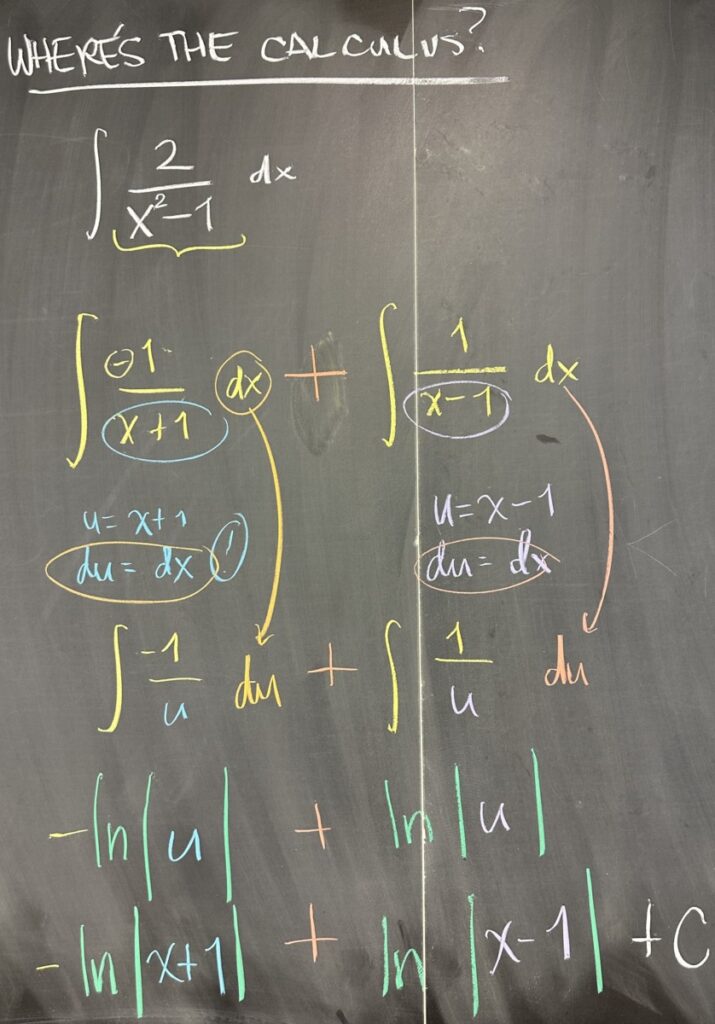 WHERE'S THE CALCULUS?
∫ 2/(x²-1) dx
∫ -1/(x+1) dx + ∫ 1/(x-1) dx
u=x+1 u=x-1
du=dx! du=dx
∫ -1/u du + ∫ 1/u du
-ln|u| + ln|u|
-ln|x+1| + ln|x-1| +C